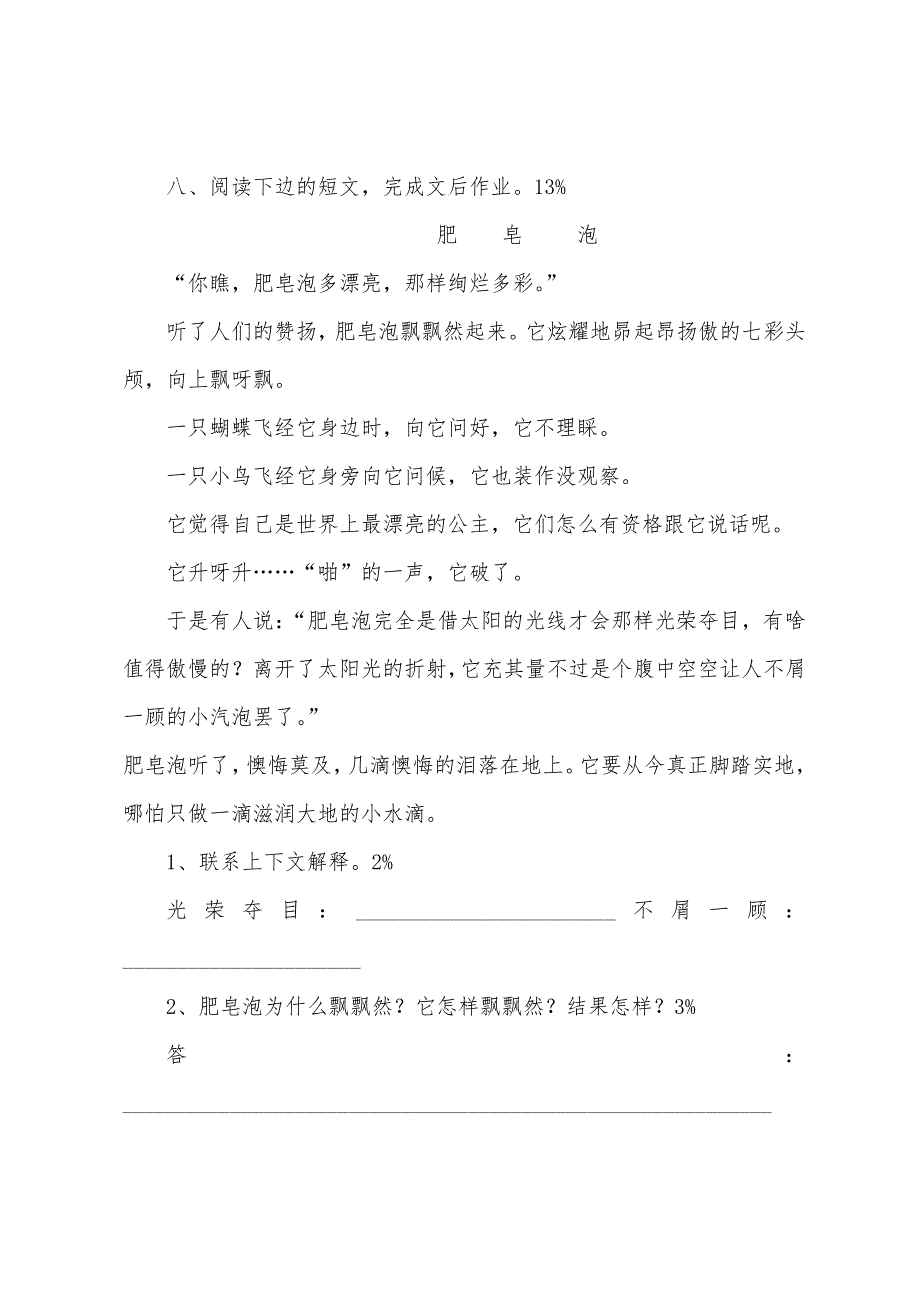 八、阅读下边的短文，完成文后作业。13%
肥 皂 泡
“你瞧，肥皂泡多漂亮，那样绚烂多彩。”
听了人们的赞扬，肥皂泡飘飘然起来。它炫耀地昴起昴扬傲的七彩头
颅，向上飘呀飘。
一只蝴蝶飞经它身边时，向它问好，它不理睬。
一只小鸟飞经它身旁向它问候，它也装作没观察。
它觉得自己是世界上最漂亮的公主，它们怎么有资格跟它说话呢。
它升呀升……“啪”的一声，它破了。
于是有人说：“肥皂泡完全是借太阳的光线才会那样光荣夺目，有啥
值得傲慢的？离开了太阳光的折射，它充其量不过是个腹中空空让人不屑
一顾的小汽泡罢了。”
肥皂泡听了，懊悔莫及，几滴懊悔的泪落在地上。它要从今真正脚踏实地，
哪怕只做一滴滋润大地的小水滴。
1、联系上下文解释。2%
光荣夺目：________________________不屑一顾：
______________________
2、肥皂泡为什么飘飘然？它怎样飘飘然？结果怎样？3%
答：
____________________________________________________________